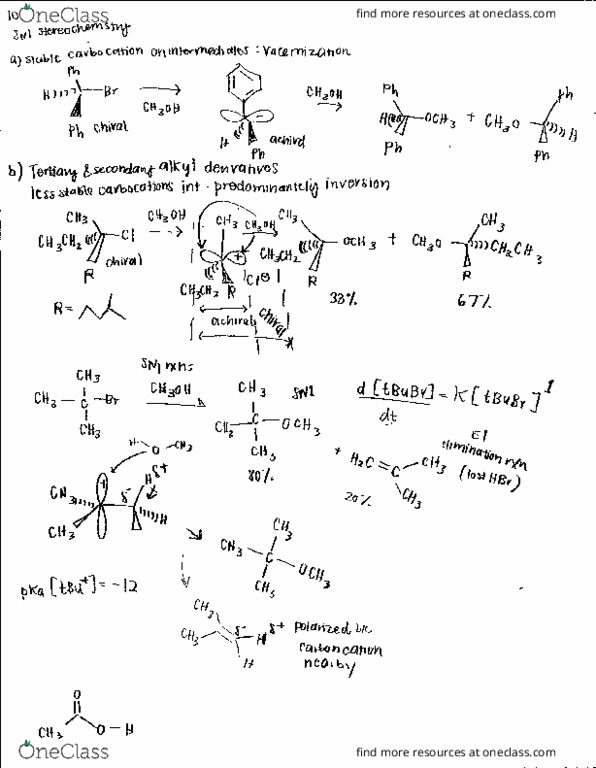 10
OneClass
find more resources at oneclass.com
SN1 stereochemistry
a) stable carbocation on intermediates : racemization
Ph
H Br
CH3OH
Ph chiral
H achiral
Ph
CH3OH
Ph
OCH3
Ph
+ CH3O
Ph
H
Ph
b) Tertiary & secondary alkyl derivatives
less stable carbocations int. predominantely inversion
CH3
CH3CH2 Cl
R chiral
CH3OH
CH3
CH3OH
+
CH3CH2 R
Cl⊖
achiral
chiral
CH3
CH3CH2 OCH3
R
33%
+ CH3O
CH3
CH2CH3
R
67%
R =
SN1 rxns
CH3
CH3 - C - Br
CH3
CH3OH
CH3
CH3 C - OCH3
CH3
80%
SN1
d [tBuBr] = K [tBuBr]1
dt
+ H2C = C CH3
CH3
20%
E1
elimination rxn
(lost HBr)
H O CH3
CH3
CH3
+
δ- H δ+
H
CH3
CH3 C OCH3
CH3
pKa [tBu+] = -12
CH3
CH3 δ- H δ+
H
polarized
nearby
O
CH3 O - H
OneClass
find more resources at oneclass.com